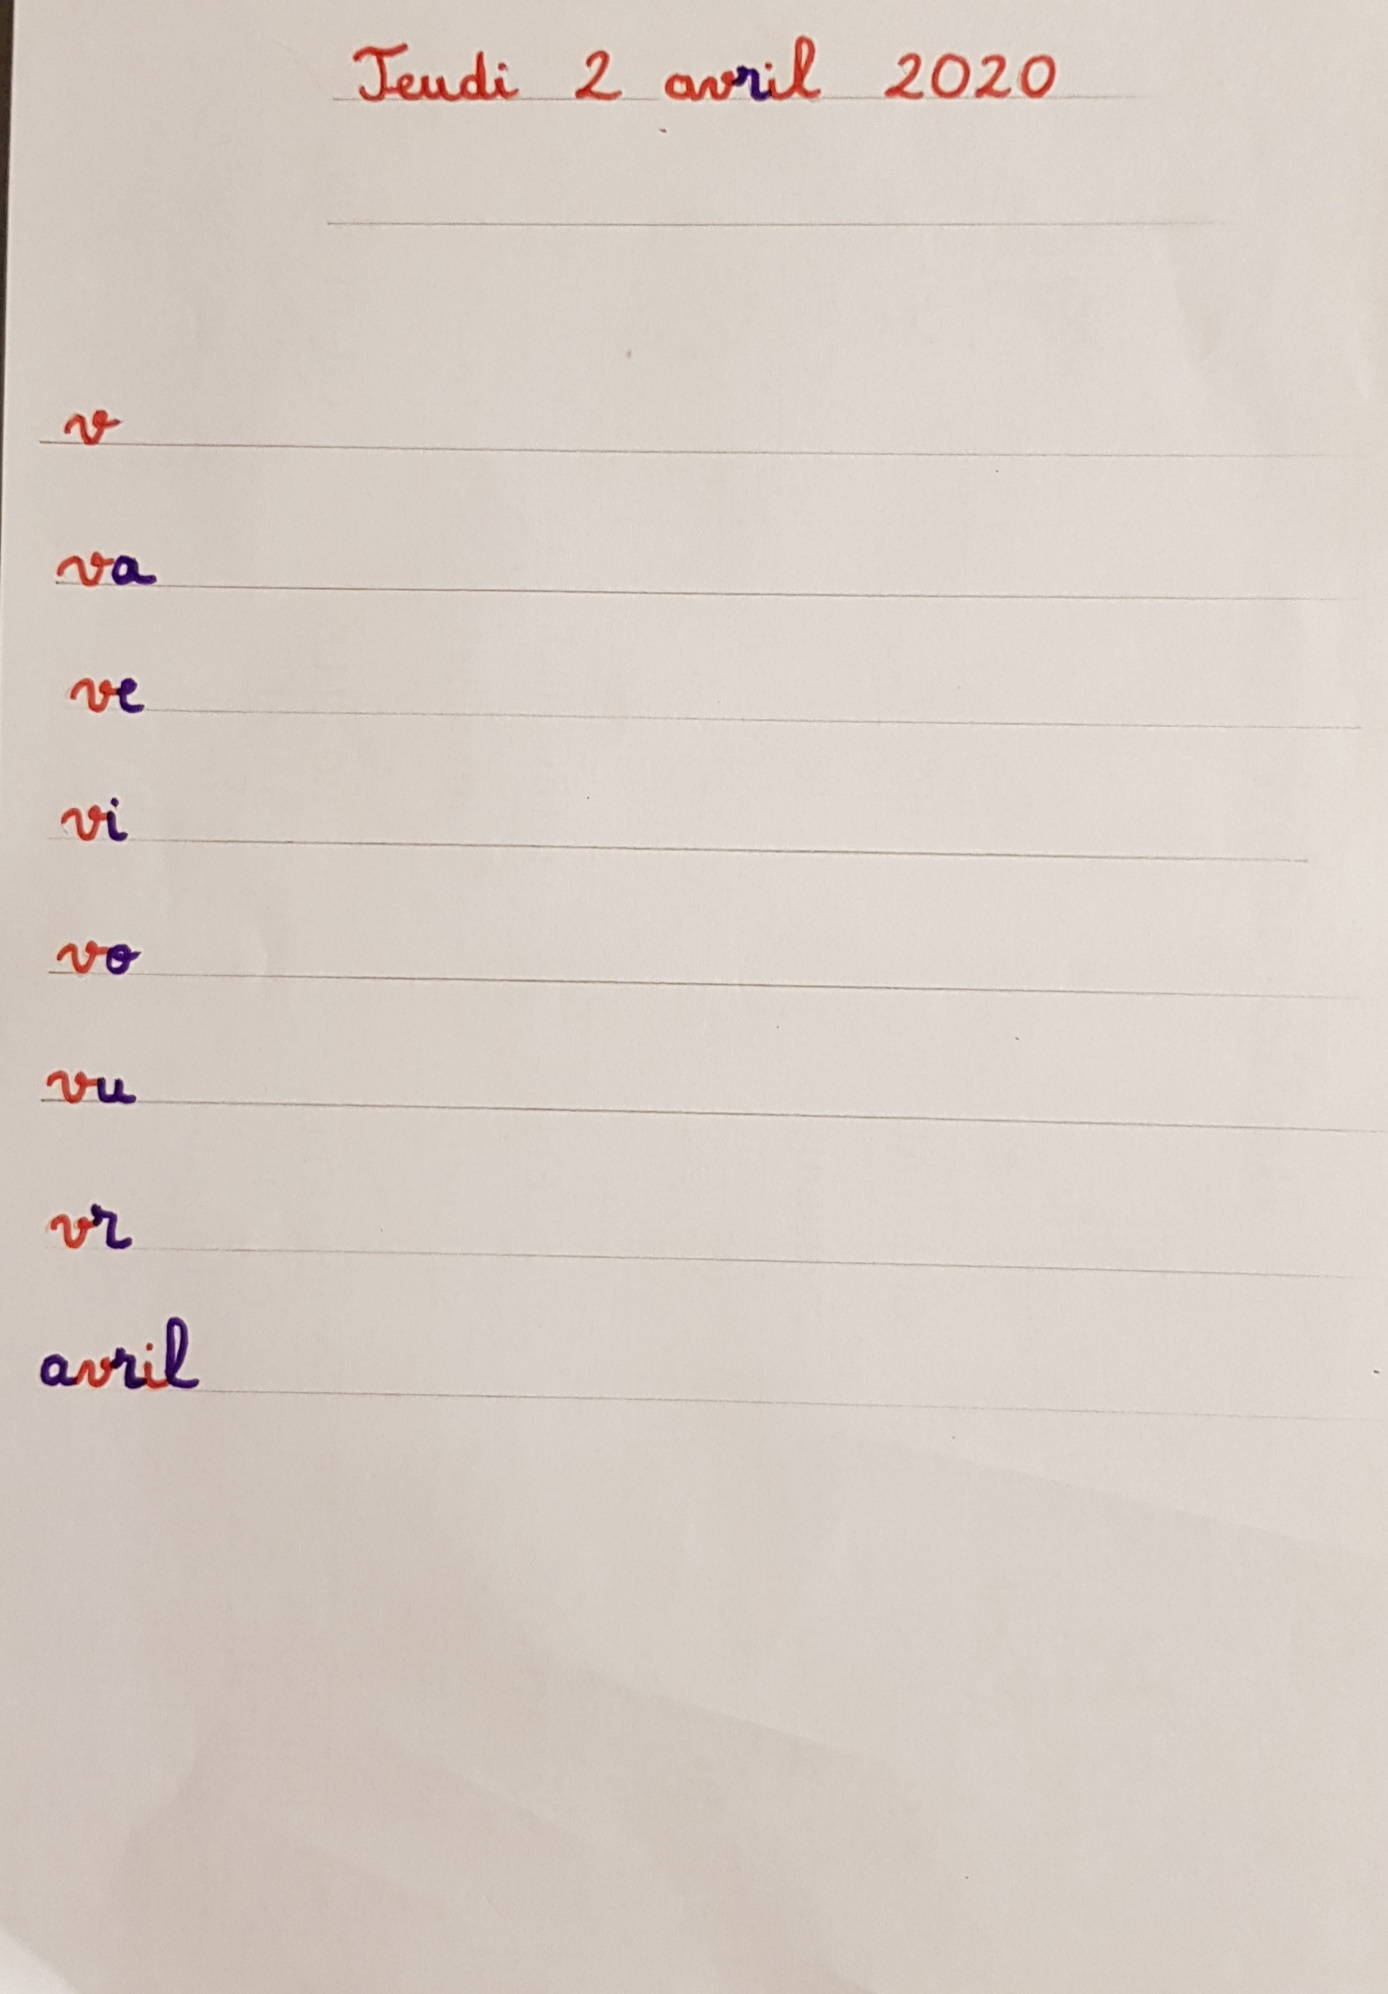 Jeudi 2 avril 2020
v
va
ve
vi
vo
vu
vr
avril